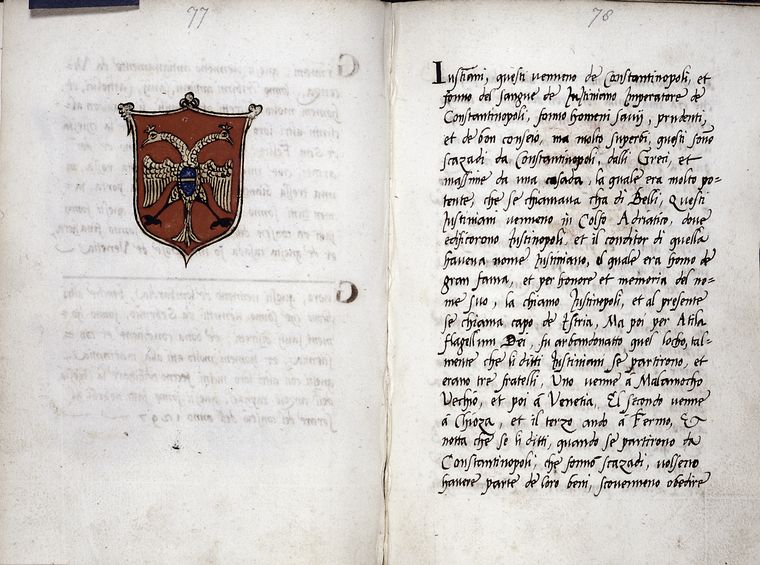 77
78
Iustiani, questi venneno de Constantinopoli, et
forno del sangue de Iustiniano Imperatore de
Constantinopoli, forno homeni savij, prudenti,
et de bon conseio, ma molto superbi, questi forno
scazadi da Constantinopoli, dalli Greci, et
massime da una casada, la quale era molto po-
tente, che se chiamava cha di Belli, Questi
Iustiniani venneno in Colfo Adriatico, dove
edificorono Iustinopoli, et il conditor di quella
haveva nome Iustiniano, il quale era homo de
gran fama, et per honore et memoria del no-
me suo, la chiamo Iustinopoli, et al presente
se chiama capo de Istria, Ma poi per Atila
flagellum Dei, fu abandonatto quel locho, tal-
mente che li ditti Iustiniani se partirono, et
erano tre fratelli, Uno venne à Malamocho
Vechio, et poi à Venetia, El secondo venne
à Chioza, et il terzo ando à Fermo, Et
notta che se li ditti, quando se partirono da
Constantinopoli, che forno scazadi, volseno
havere parte de loro beni, obedire